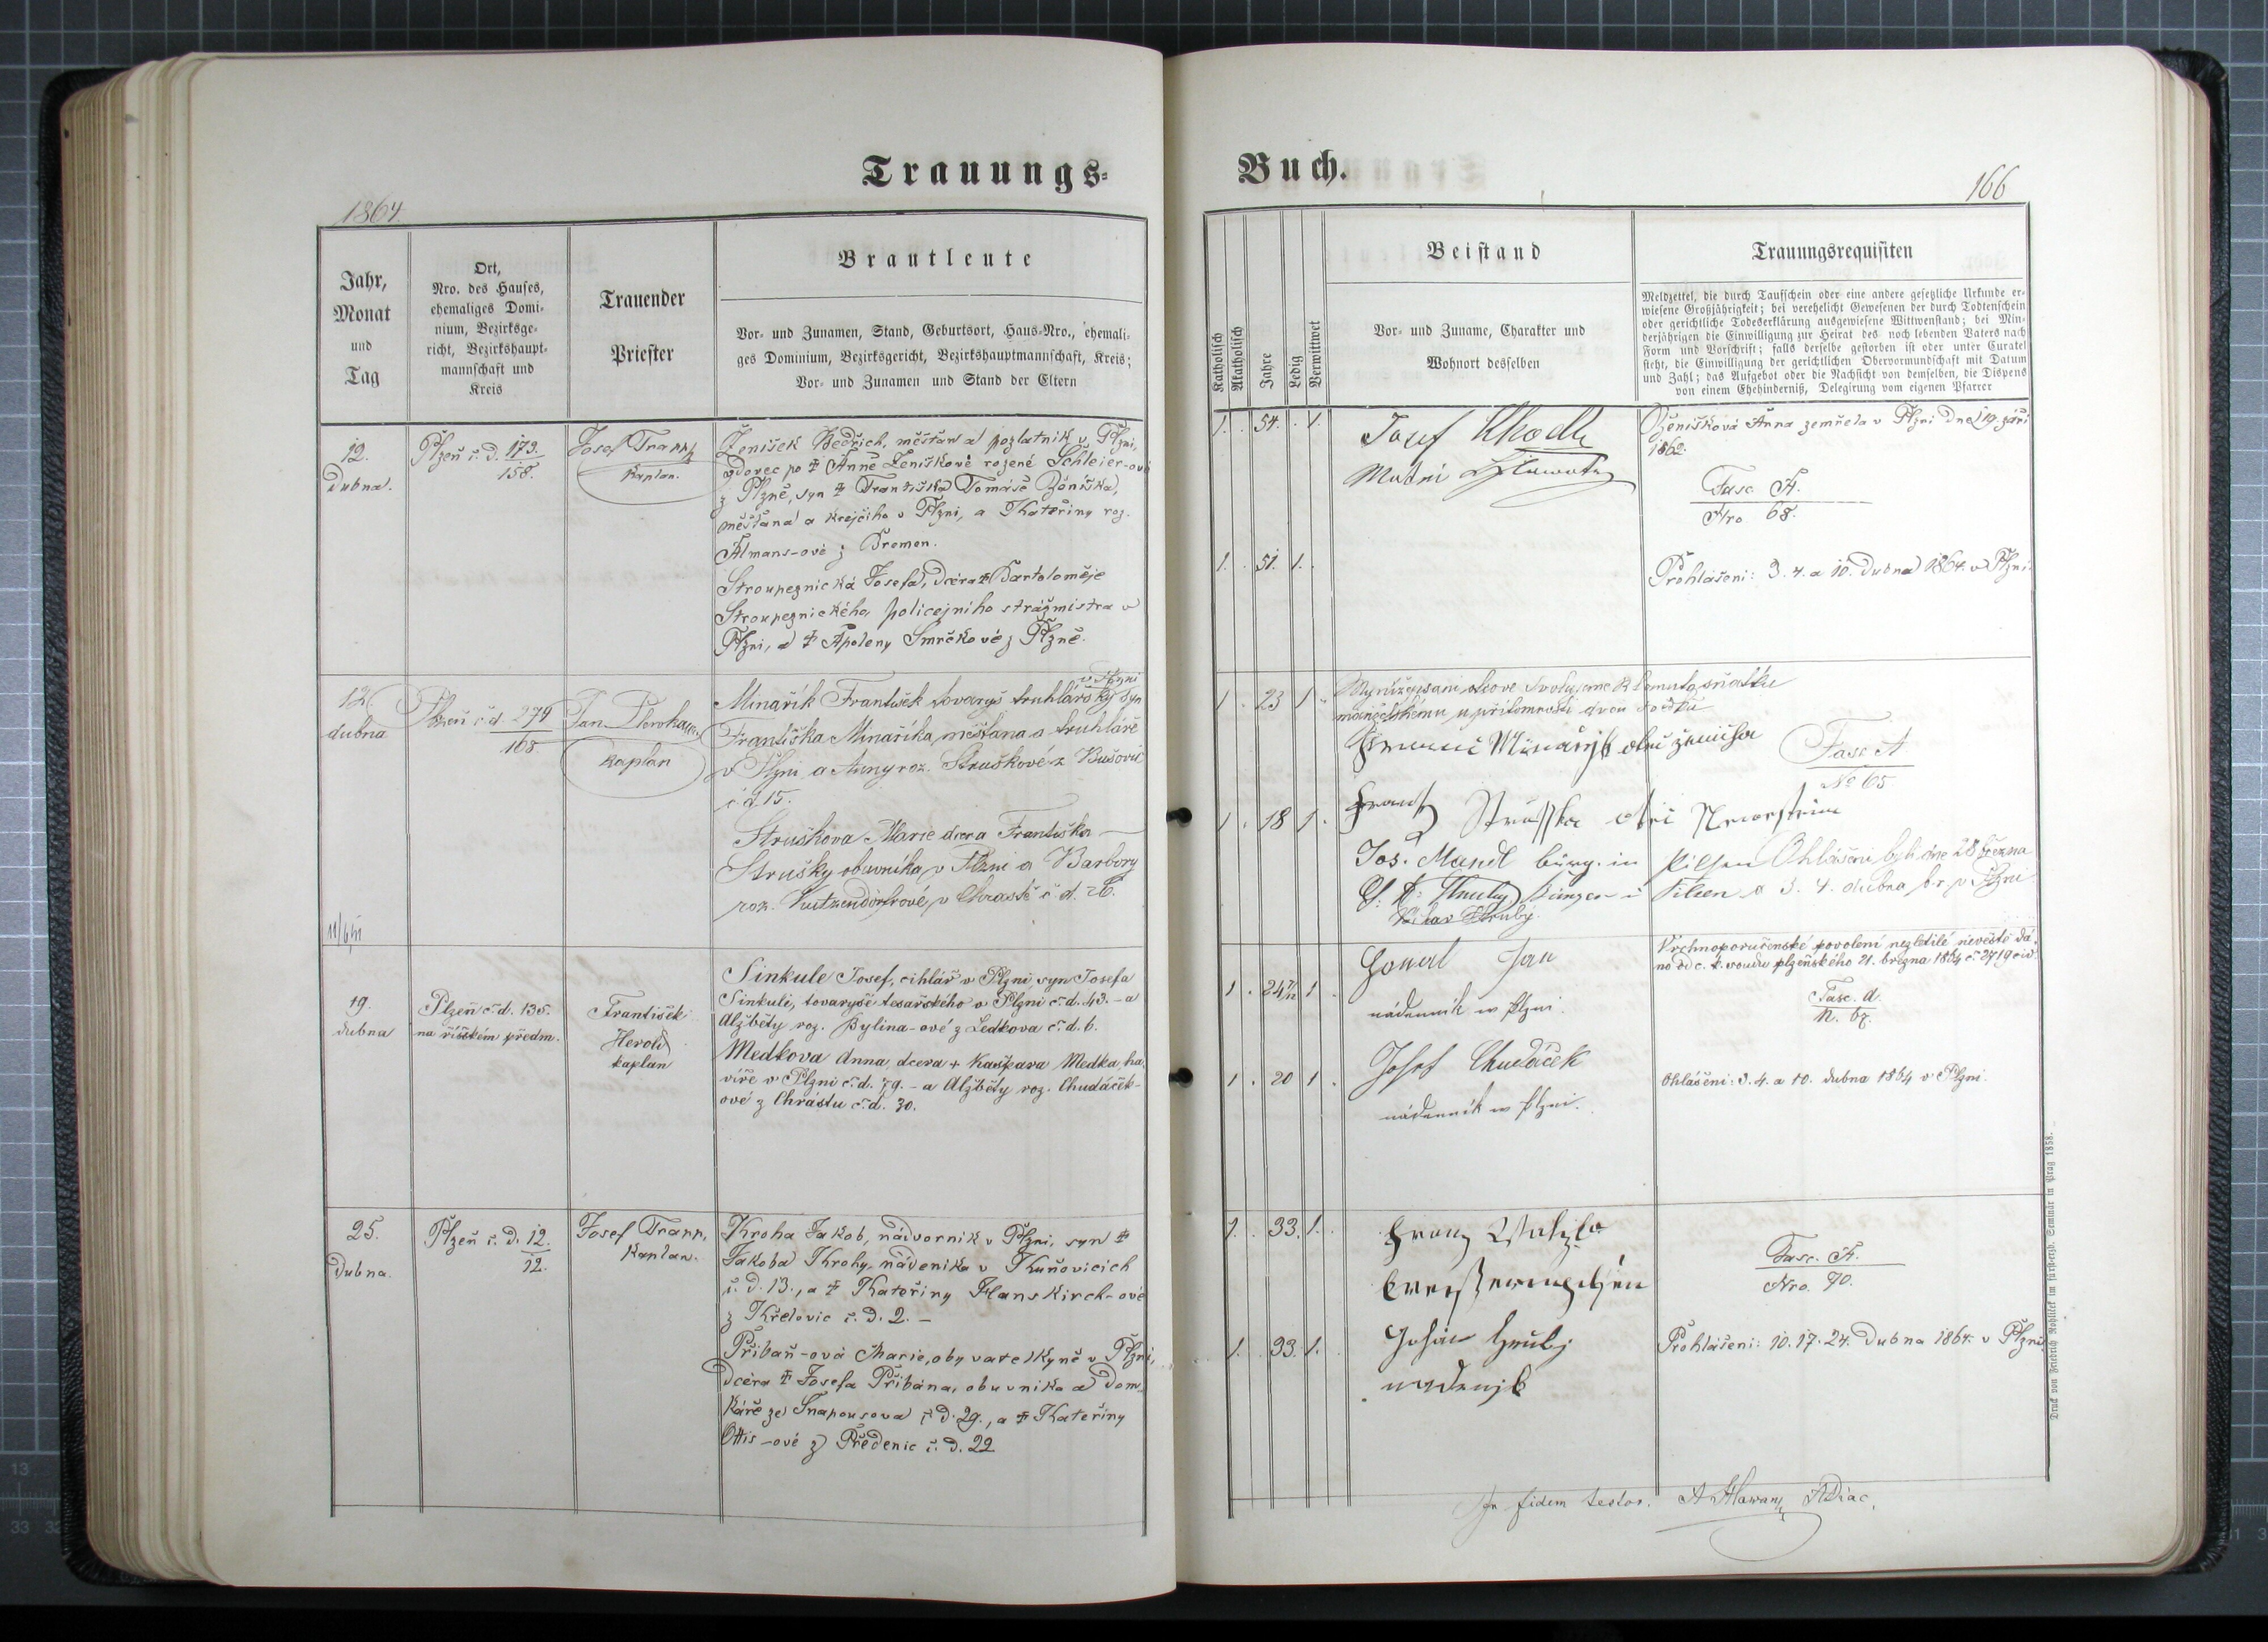 Trauungs-
1864
Jahr,
Monat
und
Tag
Ort,
Nro. des Hauses,
ehemaliges Domi-
nium, Bezirksge-
richt, Bezirkshaupt-
mannschaft und
Kreis
Trauender
Priester
Brautleute
Vor- und Zunamen, Stand, Geburtsort, Haus-Nro., ehemali-
ges Dominium, Bezirksgericht, Bezirkshauptmannschaft, Kreis;
Vor- und Zunamen und Stand der Eltern
12.
Dubna.
Plzeň č. d. 173.
158.
Josef Trapp,
Kaplan.
Ženíšek Bedřich, měšťan a pozlatník v Plzni,
vdovec po † Anně Ženíškově rozené Schleier-ové
z Plzně, syn † Františka Tomáše Ženíška,
měšťana a krejčího v Plzni, a Kateřiny roz.
Almans-ové z Bremen.
Stroupeznická Josefa, dcera † Bartoloměje
Stroupeznického, policejního strážmistra v
Plzni, a † Apoleny Smrčkové z Plzně.
12.
dubna
Plzeň č d. 279
168.
Jan
kaplan
v Plzni
Minařík František tovaryš truhlářský syn
Františka Minaříka, měšťana a truhláře
v Plzni a Anny roz. Struškové z Bušovic
č. d. 15.
Strušková Marie dcera Františka
Strušky obuvníka v Plzni a Barbory
roz. v Chrástě č. d. 26.
19.
dubna
Plzeň č. d. 135.
na říšském předm.
František
Herold
kaplan
Sinkule Josef, cihlář v Plzni, syn Josefa
Sinkule, tovaryše tesařského v Plzni č. d. 43. - a
Alžběty roz. Bylina-ové z Ledkova č. d. 6.
Medkova Anna, dcera + Kašpara Medka, ha-
víře v Plzni č. d. 79. - a Alžběty roz. Chudáček-
ové z Chrástu č. d. 30.
25.
Dubna.
Plzeň č. d. 12.
12.
Josef Trapp,
Kaplan.
Kroha Jakob, nádvorník v Plzni, syn †
Jakoba Krohy, nádeníka v Kuňovicích
č. d. 13., a † Kateřiny Hanskirch-ové
z Křelovic č. d. 2. -
Přibáň-ová Marie, obyvatelkyně v Plzni,
dcera † Josefa Přibáně, obuvníka a dom-
káře ze Snapousova č. d. 29., a † Kateřiny
Ottis-ové z Předenic č. d. 22
Buch.
166
Katholisch
Akatholisch
Jahre
Ledig
Verwittwet
Beistand
Vor- und Zuname, Charakter und
Wohnort desselben
Trauungsrequisiten
Meldzettel, die durch Taufschein oder eine andere gesetzliche Urkunde er-
wiesene Großjährigkeit; bei verehelicht Gewesenen der durch Todtenschein
oder gerichtliche Todeserklärung ausgewiesene Wittwenstand; bei Min-
derjährigen die Einwilligung zur Heirat des noch lebenden Vaters nach
Form und Vorschrift; falls derselbe gestorben ist oder unter Curatel
steht, die Einwilligung der gerichtlichen Obervormundschaft mit Datum
und Zahl; das Aufgebot oder die Nachsicht von demselben, die Dispens
von einem Ehehinderniß, Delegirung vom eigenen Pfarrer
1. 54. 1.
Josef
Ženíšková Anna zemřela v Plzni dne 19. září
1862.
Fasc. A.
Nro 68.
1. 51. 1.
Prohlášení: 3. 4. a 10. Dubna 1864. v Plzni.
1 23 1
My nížepsaní otcové svolujeme k tomuto sňatku
manželskému u přítomnosti dvou svědků
Minařjk otec ženicha
Fasc A
No 65
1 18 1
Franz Struschka otec
Jos. Mandl bürg. in Pilsen Ohlášeni byli dne 28 března
a 3. 4. dubna t. r. v Plzni
Hrubý.
1 24 1
Jan
nádenník w Plzni.
Vrchnoporučenské povolení nezletilé nevěstě dá-
no od c. k. soudu plzeňského 21. března 1864 č. 2719 civ.
Fasc. A.
N. 67.
1 20 1
Josef Chudáček
nádenník w Plzni.
Ohlášení: 3. 4. a 10. dubna 1864 v Plzni.
1. 33. 1.
Franz
Fasc. A.
Nro. 70.
1. 33. 1.
Johan Hrubj
nadenjk
Prohlášení: 10. 17. 24. Dubna 1864. v Plzni
In fidem testor. ADiac.
Druck von Friedrich Rohliček im fürst-erzb. Seminär in Prag 1858.